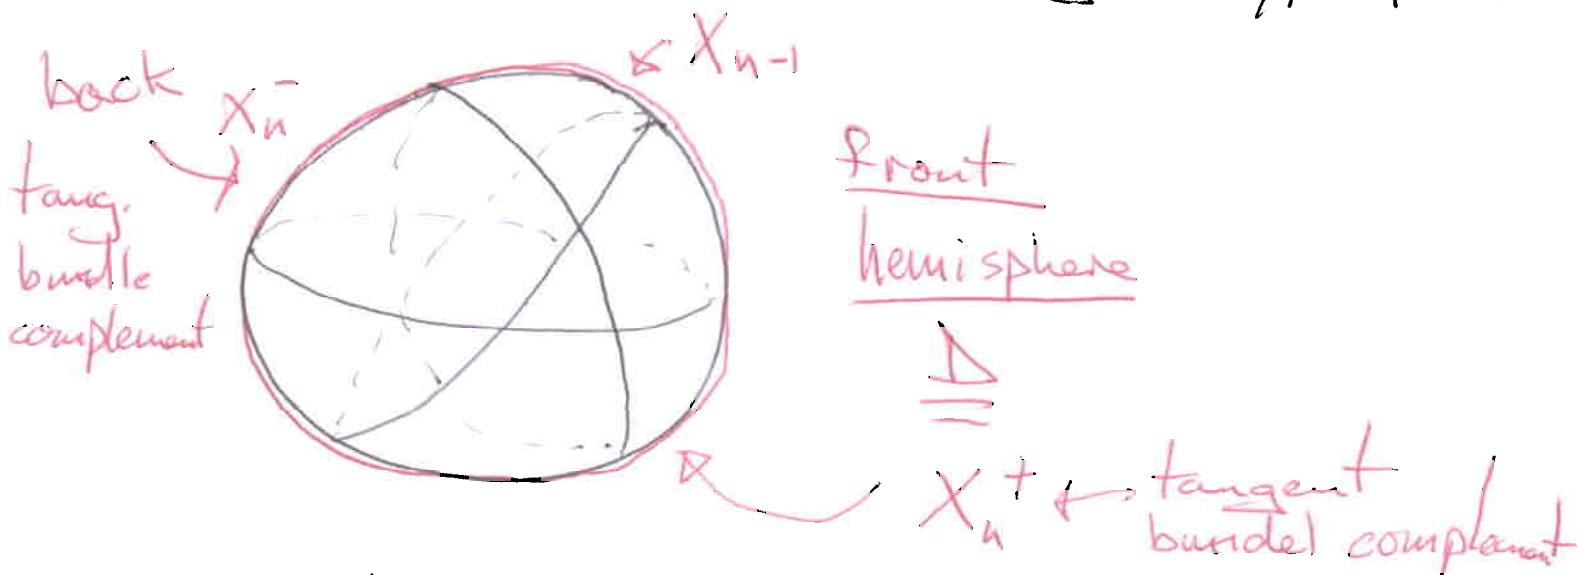 back
X_n^-
tang.
bundle
complement
X_{n-1}
front
hemisphere
≙
X_n^+ ↔ tangent
bundel complement